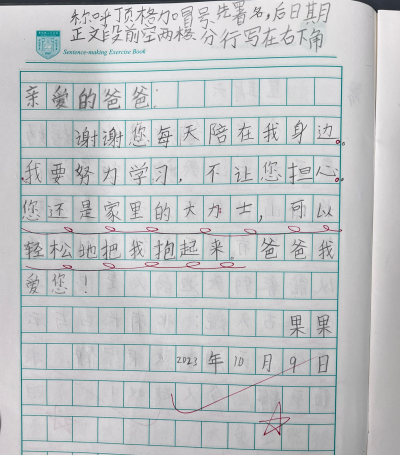 称呼顶格加冒号先署名,后日期
正文段前空两格分行写在右下角
Sentence-making Exercise Book
亲爱的爸爸:
谢谢您每天陪在我身边。
我要努力学习,不让您担心。
您还是家里的大力士,可以
轻松地把我抱起来。爸爸我
爱您!
果果
2023年10月9日